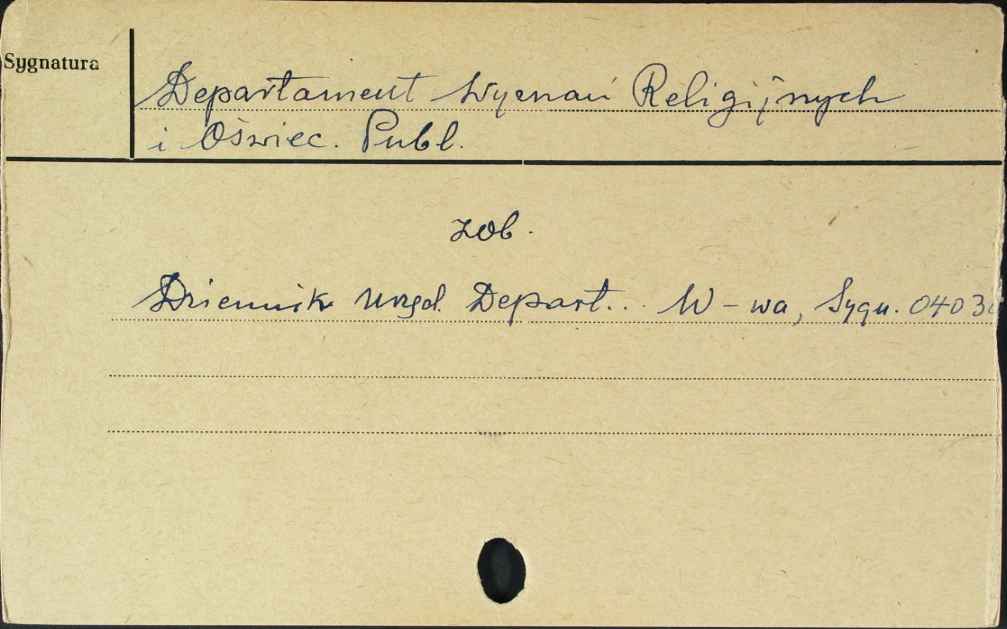 Sygnatura
Departament Wyznań Religijnych
i Oświec. Publ.
zob.
Dziennik Urzęd. Depart... W-wa, Sygn. 04030